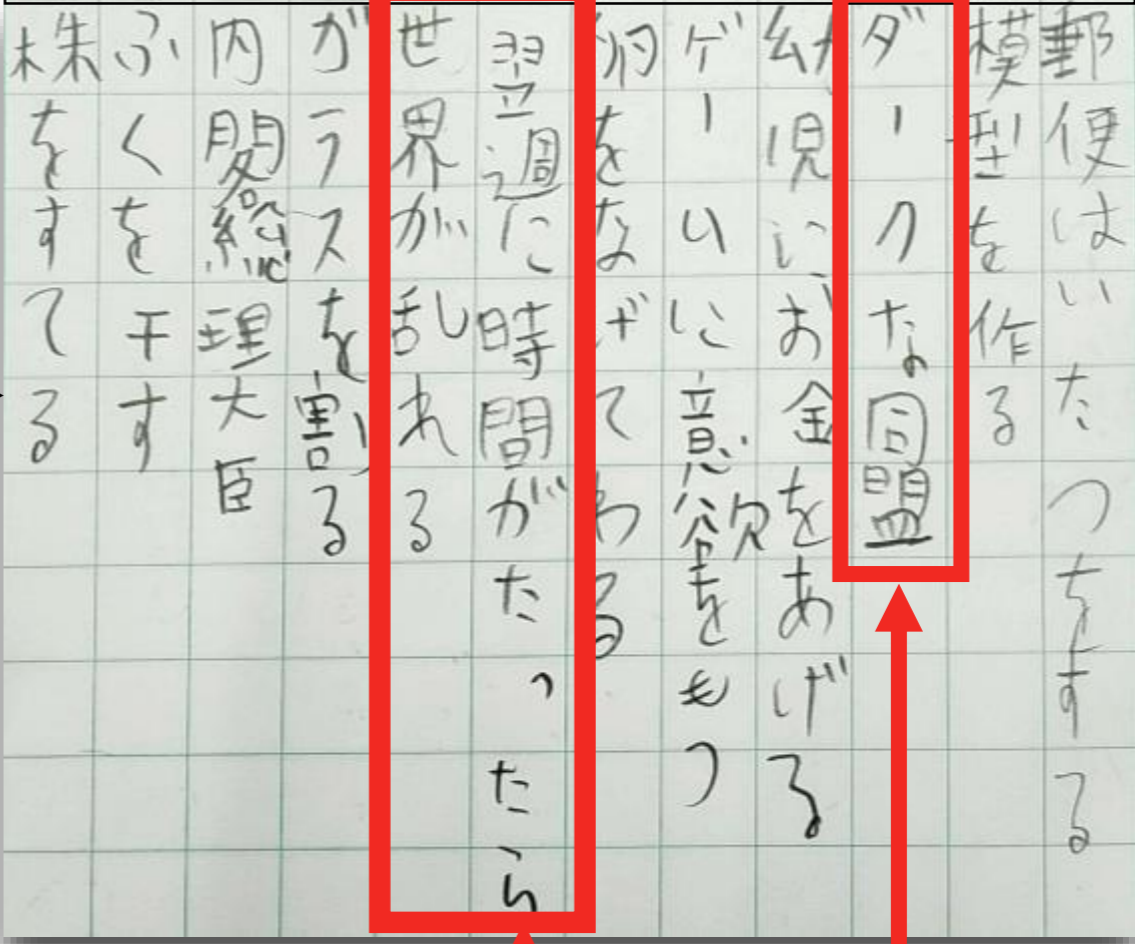 郵便はいたつをする
模型を作る
ダークな同盟
幼児にお金をあげる
ゲームに意欲をもつ
をなげてわる
翌週に時間がたったら
世界が乱れる
ガラスを割る
内閣総理大臣
ふくを干す
株をすてる